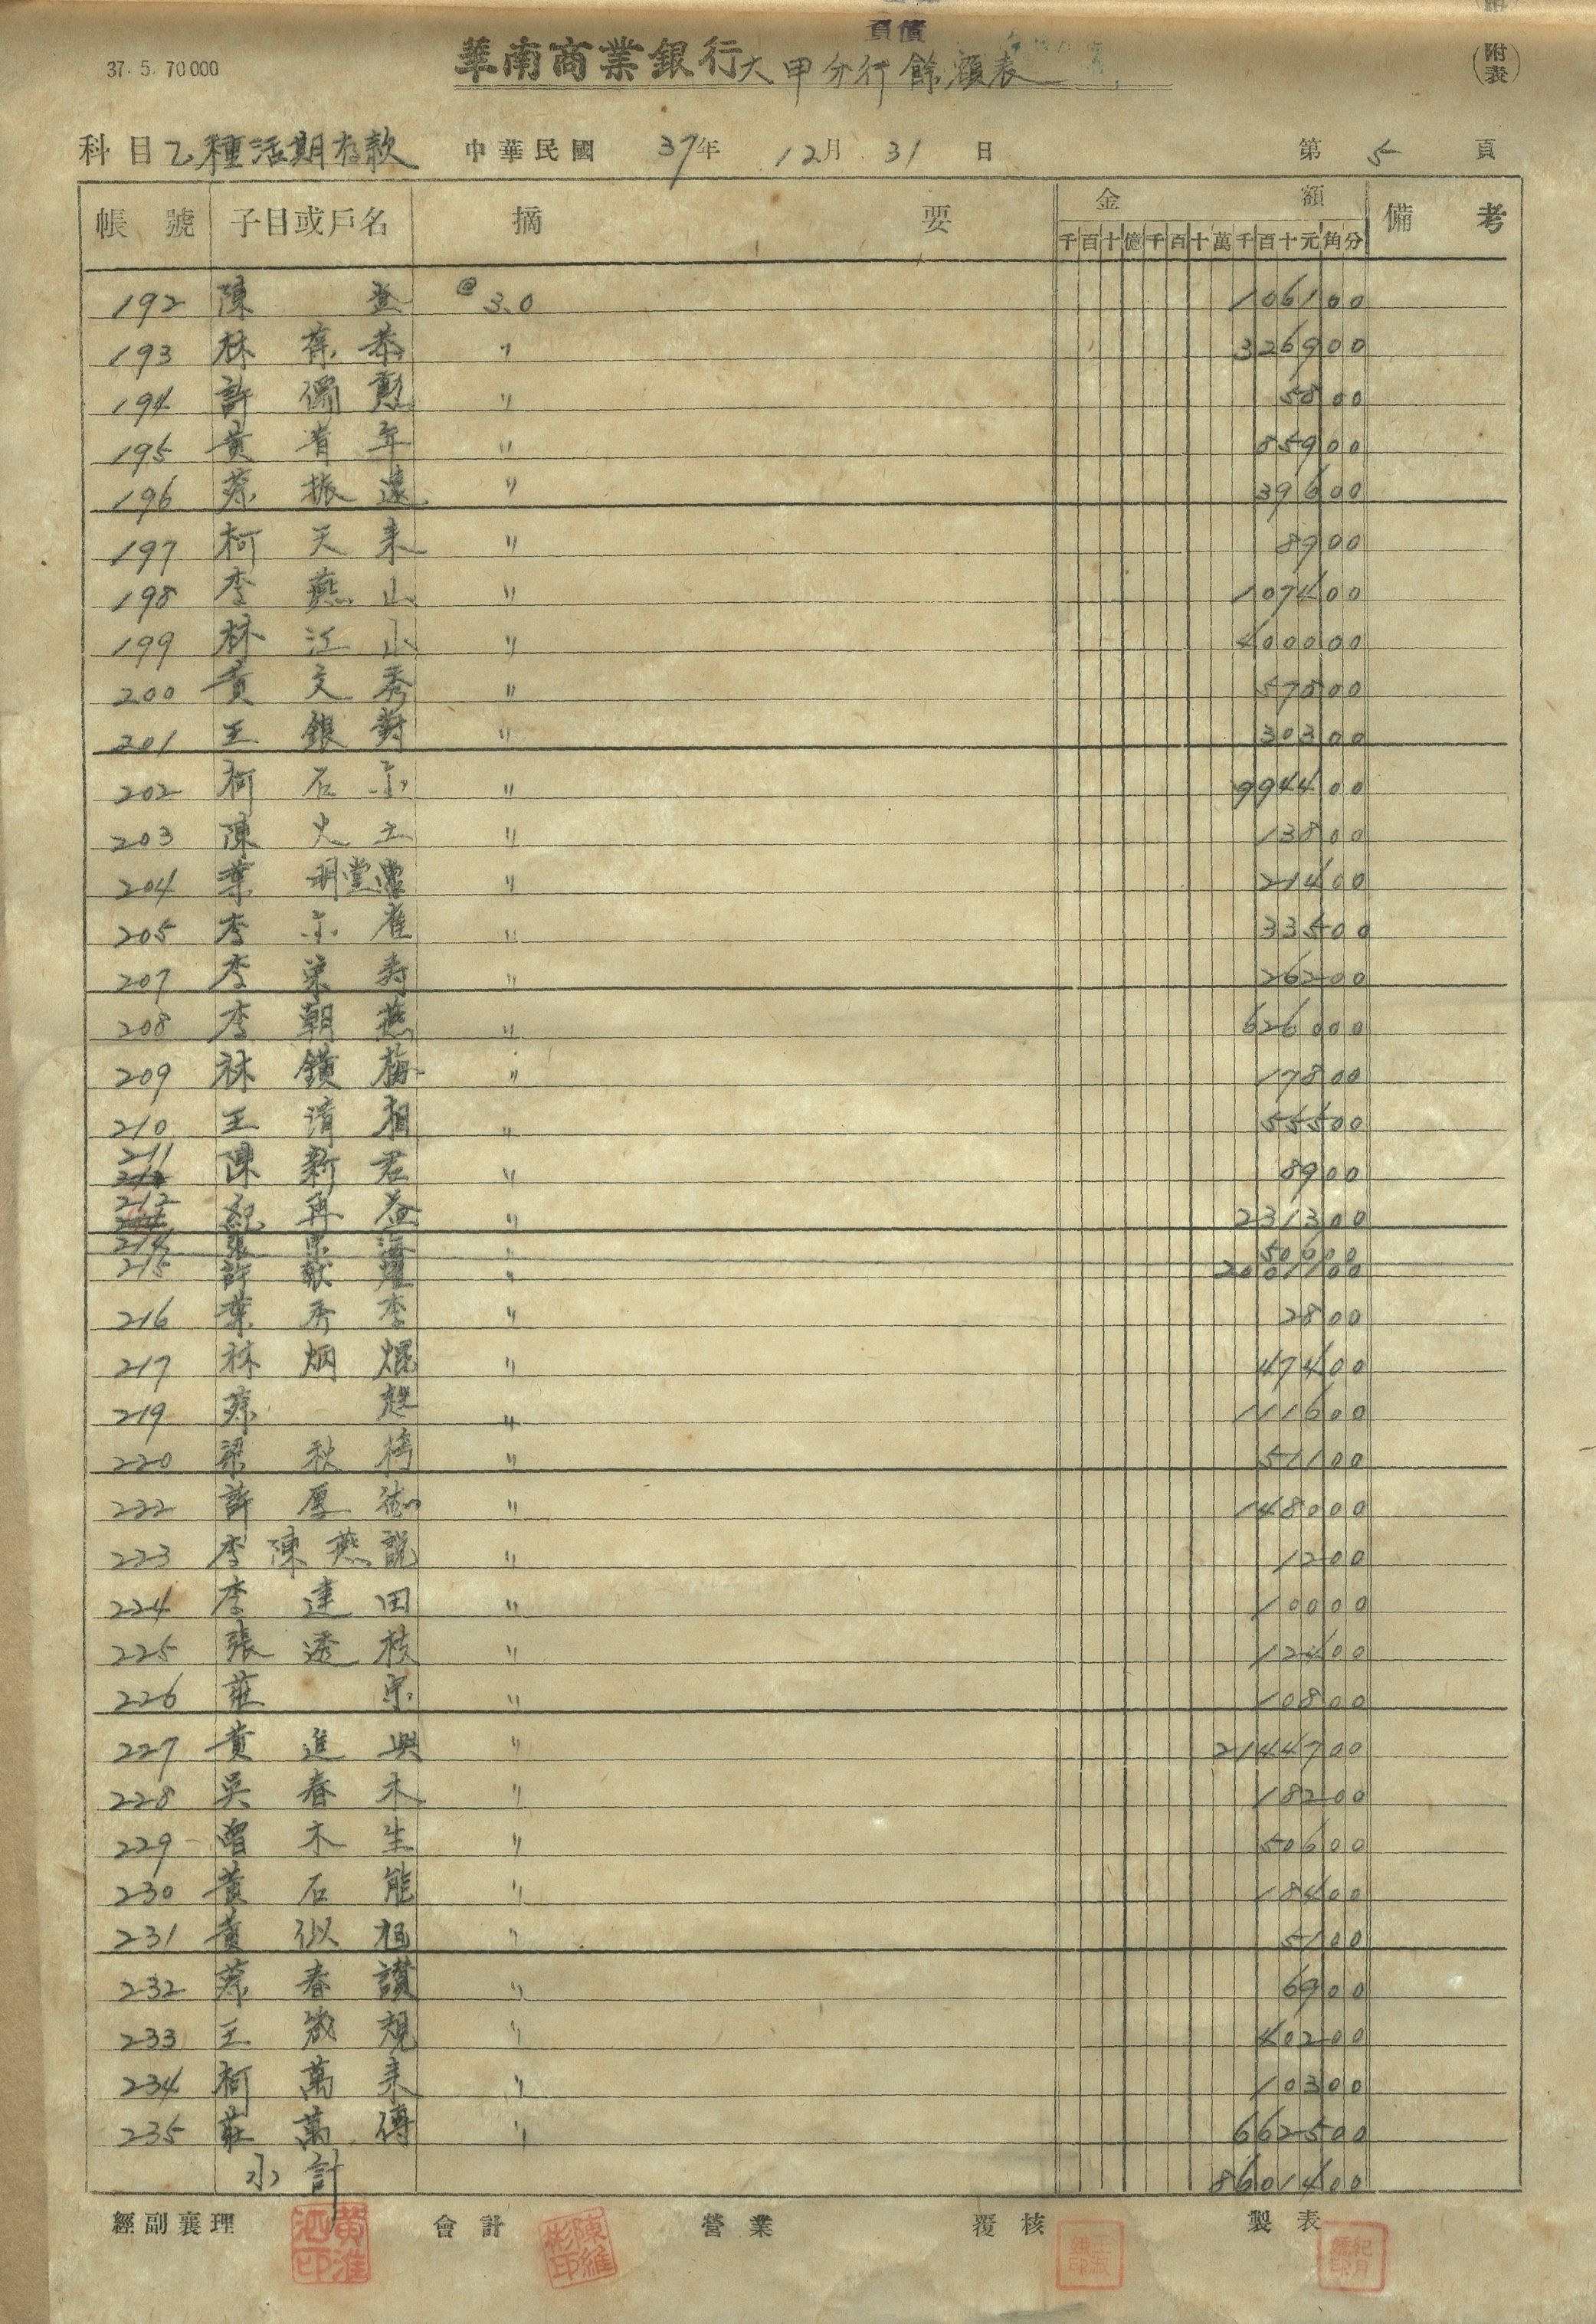 負債
37. 5. 70000
華南商業銀行大甲分行餘額表
(附表)
科目 乙種活期存款 中華民國 37年 12月 31日 第 5 頁
帳號 子目或戶名 摘要 金額 備考
千百十億千百十萬千百十元角分
192 陳 登 @3.0 1061 00
193 林 〃 3269 00
194 許 〃 58 00
195 黃 有 年 〃 859 00
196 蔡 振 遠 〃 396 00
197 柯 天 來 〃 89 00
198 李 燕 山 〃 1074 00
199 林 江 山 〃 4000 00
200 黃 文 秀 〃 578 00
201 王 銀 對 〃 303 00
202 柯 石 宗 〃 9944 00
203 陳 火 土 〃 138 00
204 葉 明堂 〃 214 00
205 李 〃 335 00
207 李 榮 壽 〃 262 00
208 李 朝 燕 〃 6260 00
209 林 鎮 梅 〃 178 00
210 王 清 相 〃 555 00
211 陳 新 君 〃 89 00
212 紀 再 益 〃 2313 00
214 張 海 〃 506 00
215 許 〃 20011 00
216 葉 秀 李 〃 28 00
217 林 炳 焜 〃 474 00
219 蔡 〃 1116 00
220 梁 秋 〃 511 00
222 許 厚 德 〃 1480 00
223 李 陳 燕 說 〃 12 00
224 李 建 田 〃 100 00
225 張 透 枝 〃 124 00
226 莊 〃 108 00
227 黃 進 興 〃 21447 00
228 吳 春 木 〃 182 00
229 曾 木 生 〃 506 00
230 黃 石 能 〃 184 00
231 黃 似 祖 〃 51 00
232 蔡 春 讚 〃 69 00
233 王 規 〃 402 00
234 柯 萬 來 〃 103 00
235 莊 萬 傳 〃 6625 00
小計 86014 00
經副襄理 會計 營業 覆核 製表
黃淮泗印 陳維彬印